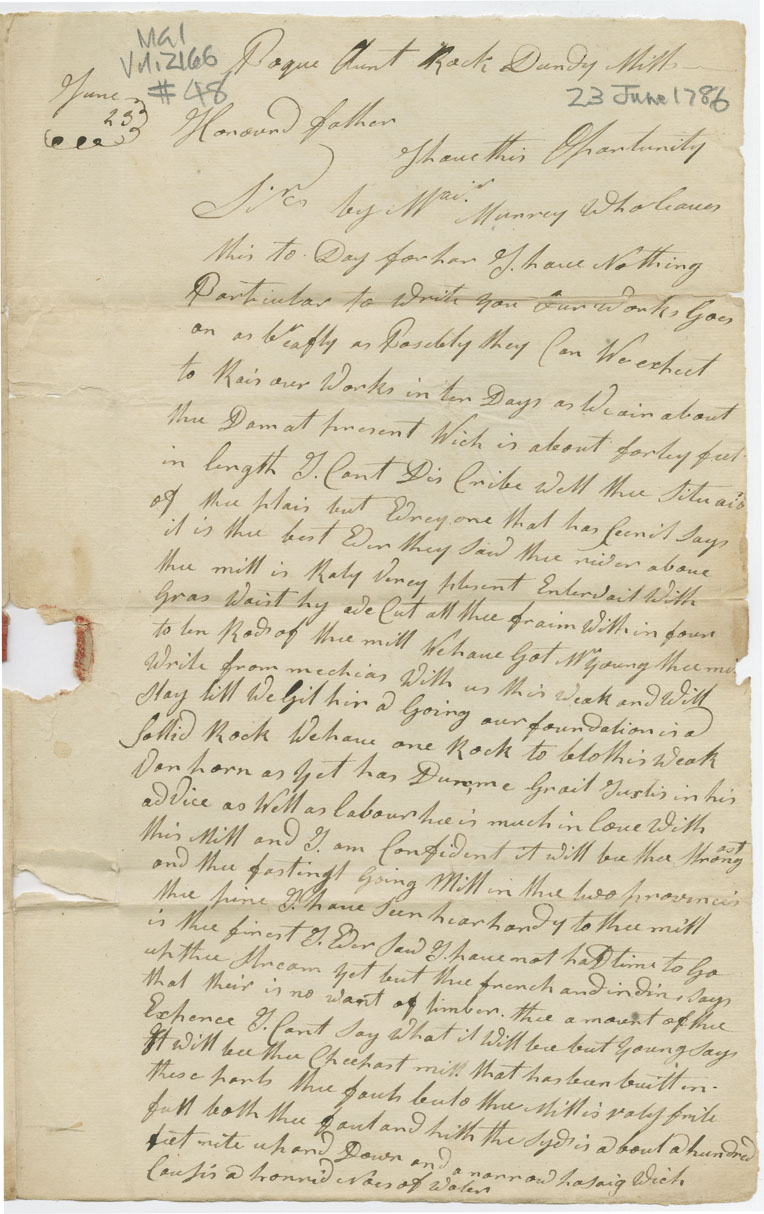 MG1
Vol. 2166
#48
23 June 1786
Poque Aunt Rock Dundy Mills
June
23d
Honourd father
I have this Oportunity
by Murrey Who leaves
this to Day for har I have Nothing
Particular to Write you Our Works Goes
on as as Posebly they Can We exhect
to Rais our Works in ten Days as We air about
the Dam at present Wich is about forty feet
in length I Cant Dis Cribe Well thee Situaio
of thee plais but Evrey one that has Ceen it Says
it is thee best Ever they Saw thee river above
thee mill is Raly Verey plesent Entervail With
Gras Waist hy Cut all thee fraim With in four
to ten Rods of thee mill We have Got Mr Young thee
Write from mechias With us this Weak and Will
Stay till We Git hir a Going our foundation is a
Sollid Rock We have one Rock to blo this Weak
Van horn as yet has Dun me Grait Justis in his
advice as Well as labour hee is much in Love With
this Mill and I am Confident it will bee thee Strongast
and thee fastingt Going Mill in thee two provincis
thee pine I have Seen hear handy to thee mill
is thee finest I Ever Saw I have not had time to Go
up thee Stream yet but thee french and indins Says
that their is no want of timber thee amount of thee
Exhence I Cant Say What it Will bee but Young Says
It will bee thee Cheepast mill that has been built in
these parts thee to thee Mill is raly
full both thee and hith the Syds is about a hundred
feet rite up and Down and a narrow Wich
Causis a horrid Noes of Water